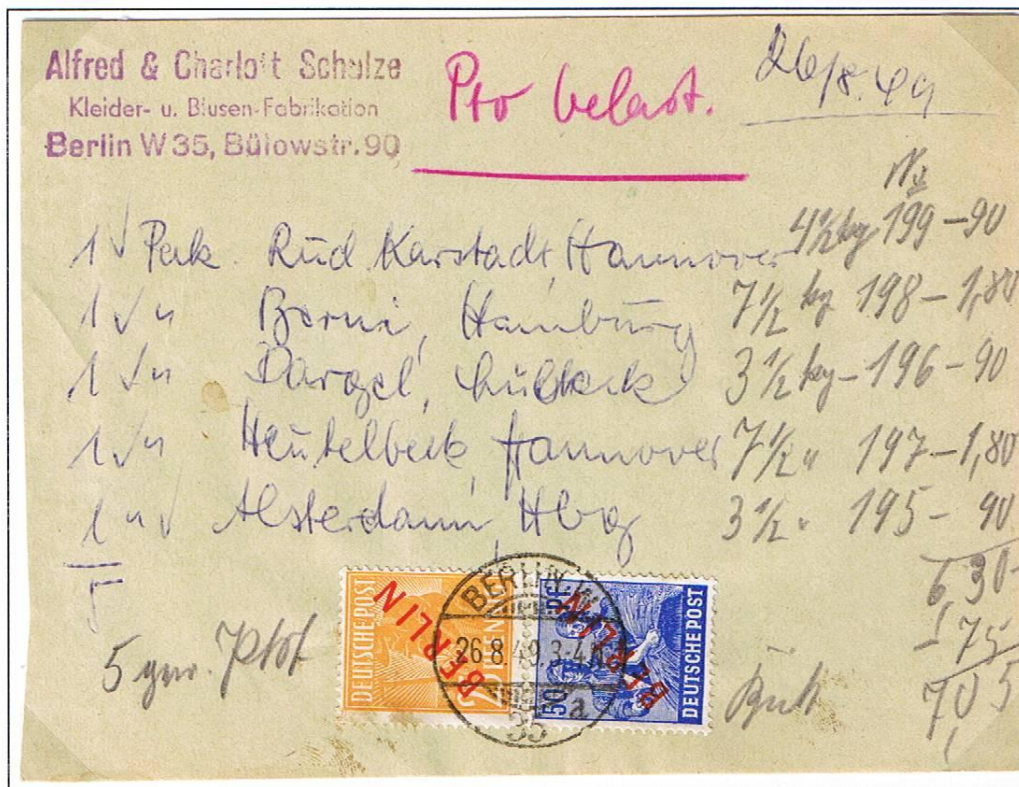 Alfred & Charlott Schulze
Kleider- u. Blusen-Fabrikation
Berlin W 35, Bülowstr. 90
Pto belast.
26/8.49
1 √ Pak. Rud. Karstadt, Hannover 4½ kg 199 – 90
1 √ " Berni, Hamburg 7½ kg 198 – 1,80
1 √ " Dargel, Lübeck 3½ kg – 196 – 90
1 √ " Heutelbeck, Hannover 7½ " 197 – 1,80
1 " √ Alsterdamm, Hbg 3½ " 195 – 90
5
6,30
– 75
7,05
5 gew.
DEUTSCHE POST
BERLIN
BERLIN
50
DEUTSCHE POST
BERLIN W
26.8.49.3-4
35
a